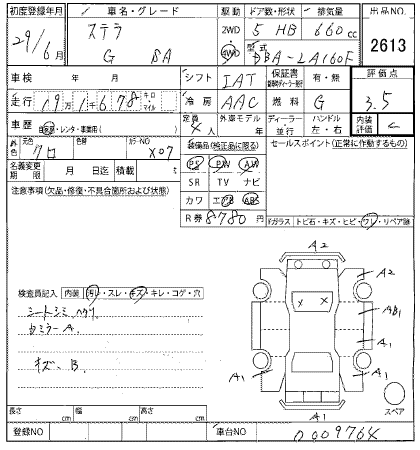 初度登録年月 車名・グレード 駆動 ドア数・形状 排気量 出品NO.
29/6月 ステラ G SA 2WD 4WD 5 HB 660cc 2613
型式 DBA-LA160F
車検 年 月 シフト IAT 保証書 有・無 評価点
走行 19万1千678 キロ マイル 冷房 AAC 燃料 G 3.5
車歴 自家用・レンタ・事業用( ) 定員 4人 外車モデル 年 ディーラー 並行 ハンドル 左・右 内装評価 C
色 元色 クロ 色替 カラーNO X07 装備品(純正品に限る) セールスポイント(正常に作動するもの)
名義変更期限 月 日迄 積載 t PS PW AW
SR TV ナビ
注意事項(欠品・修復・不具合箇所および状態) カワ エアB ABS
R券 8780円
Fガラス トビ石・キズ・ヒビ・ワレ・リペア跡
A2
A2
検査員記入 内装 汚レ・スレ・キズ・キレ・コゲ・穴
シートシミ ヘタリ
AB1
A1
キズ B
A1 A1
A1
スペア
長さ cm 幅 cm 高さ cm
登録NO 車台NO 0009764